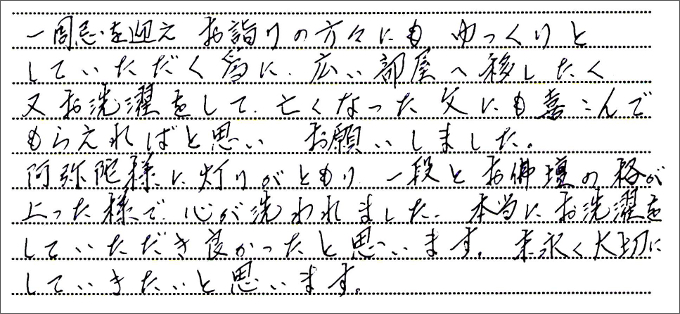 一周忌を迎え お詣りの方々にも ゆっくりと
していただく為に、広い部屋へ移したく
又お洗濯をして、亡くなった父にも喜こんで
もらえればと思い お願いしました。
阿弥陀様に灯りがともり 一段とお佛壇の格が
上った様で 心が洗われました。本当にお洗濯を
していただき良かったと思います。末永く大切に
していきたいと思います。